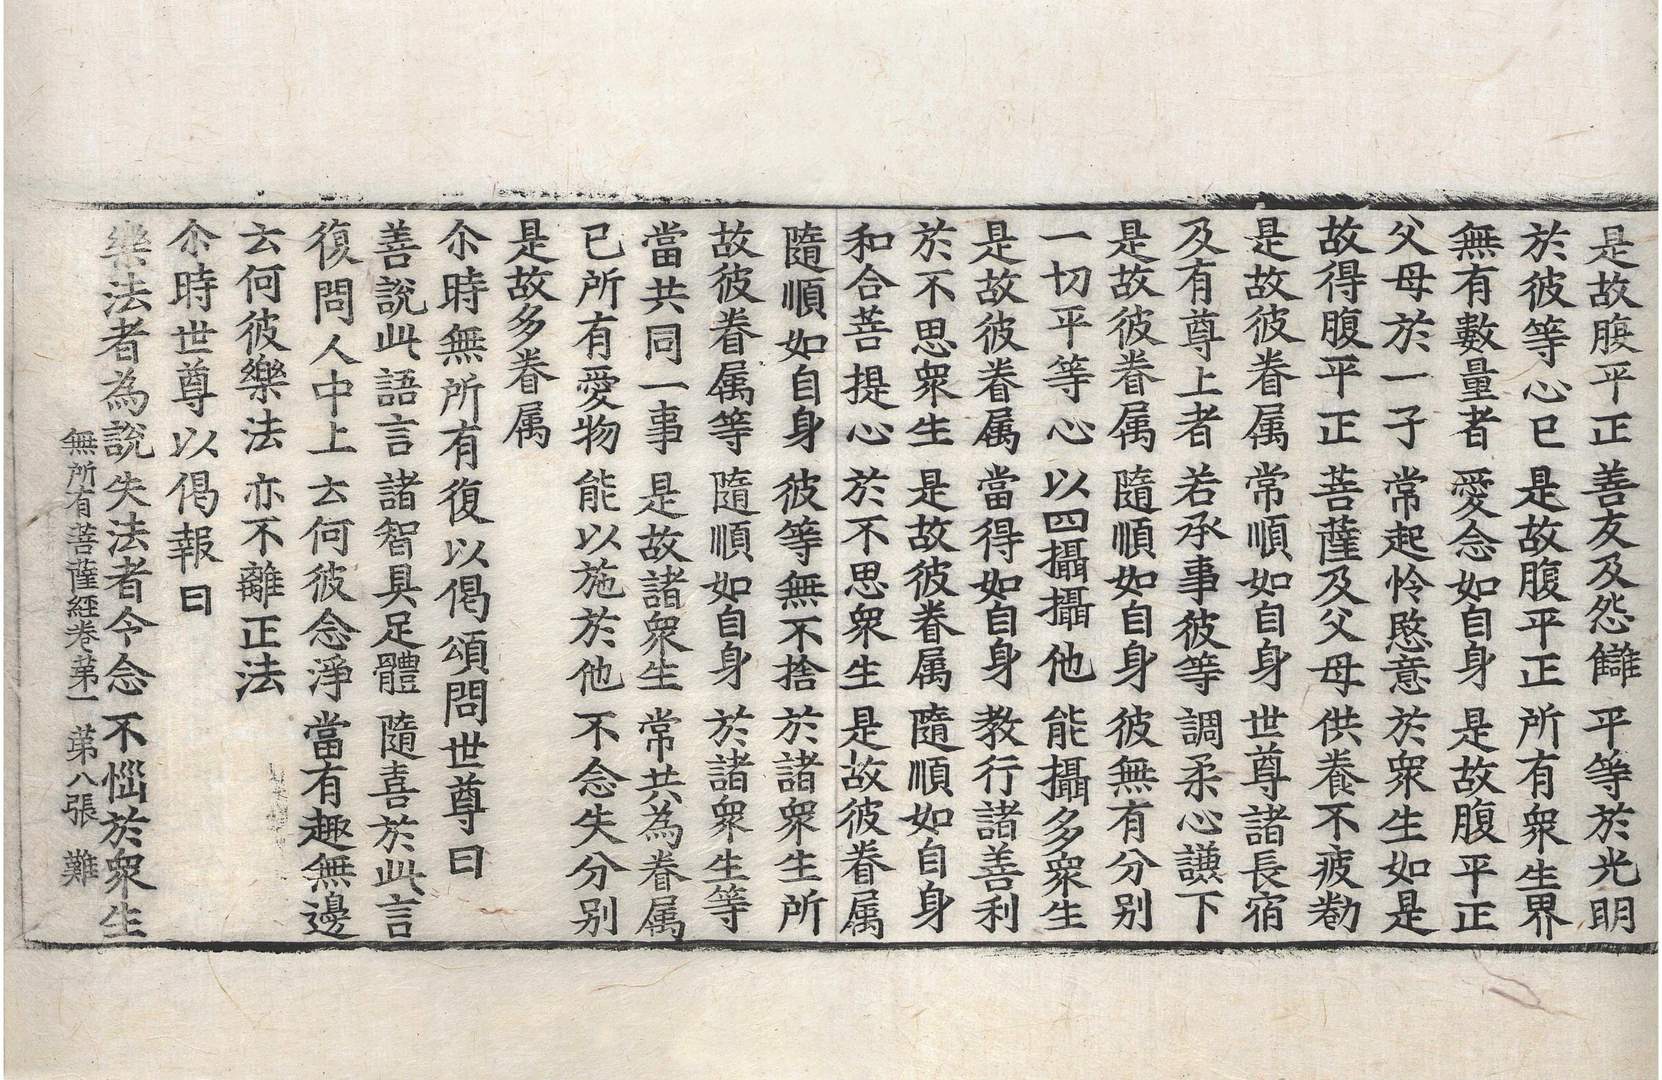 是故腹平正 善友及怨讎 平等於光明
於彼等心已 是故腹平正 所有衆生界
無有數量者 愛念如自身 是故腹平正
父母於一子 常起怜愍意 於衆生如是
故得腹平正 菩薩及父母 供養不疲勌
是故彼眷属 常順如自身 世尊諸長宿
及有尊上者 若承事彼等 調柔心謙下
是故彼眷属 隨順如自身 彼無有分别
一切平等心 以四攝攝他 能攝多衆生
是故彼眷属 當得如自身 教行諸善利
於不思衆生 是故彼眷属 隨順如自身
和合菩提心 於不思衆生 是故彼眷属
隨順如自身 彼等無不捨 於諸衆生所
故彼眷属等 隨順如自身 於諸衆生等
當共同一事 是故諸衆生 常共為眷属
已所有愛物 能以施於他 不念失分别
是故多眷属
尒時無所有復以偈頌問世尊曰
善說此語言 諸智具足體 隨喜於此言
復問人中上 云何彼念淨 當有趣無邊
云何彼樂法 亦不離正法
尒時世尊以偈報曰
樂法者為說 失法者令念 不惱於衆生
無所有菩薩經卷第一 第八張 難